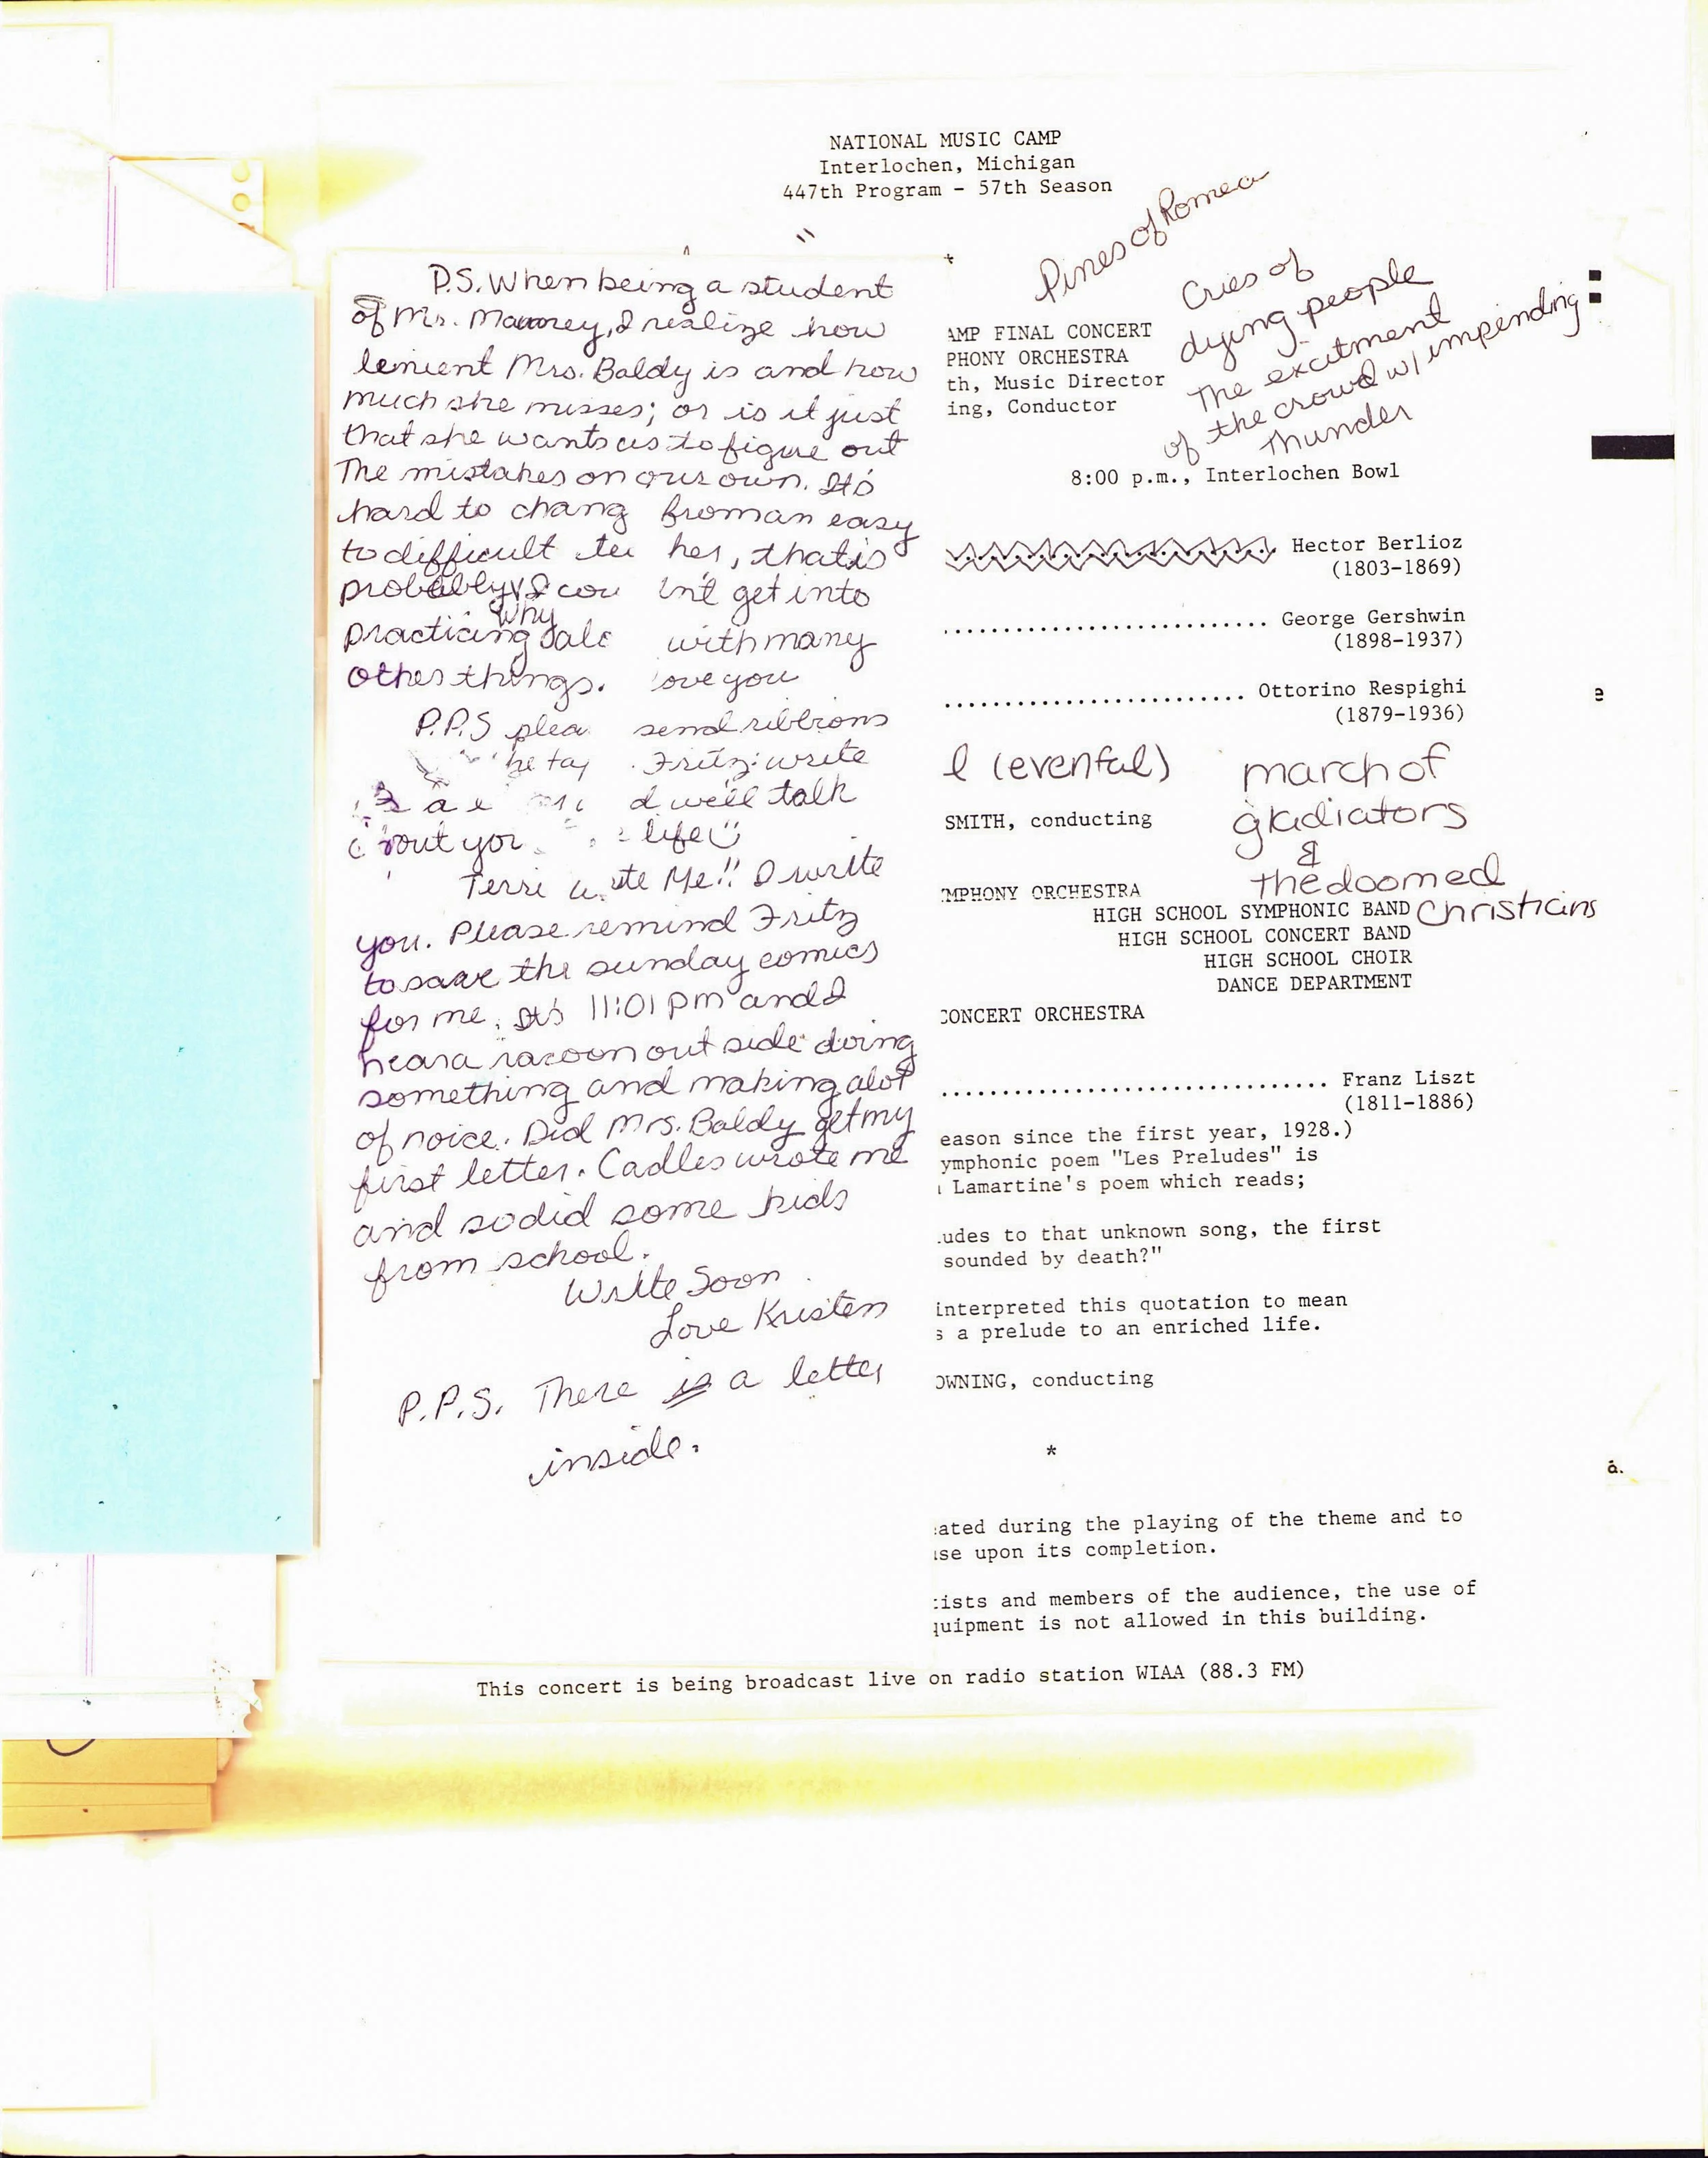 NATIONAL MUSIC CAMP
Interlochen, Michigan
447th Program - 57th Season
P.S. When being a student
of Mr. I realize how
lenient Mrs. Baldy is and how
much she misses; or is it just
that she wants us to figure out
The mistakes on our own. It's
hard to chang from an easy
to difficult her, that is
probably why I
practicing with many
other things. love you
P.P.S send ribbons
Fritz: write
d we'll talk
life
Terri Me!! I write
you. Please remind Fritz
to save the sunday comics
for me. It's 11:01 pm and I
hear a racoon out side doing
something and making alot
of noice. Did Mrs. Baldy get my
first letter. Cadles wrote me
and so did some kids
from school.
Write Soon
Love Kristen
P.P.S. There is a letter
inside.
Pines of Rome
Cries of
dying people
The excitment
of the crowd w/ impending
Thunder
AMP FINAL CONCERT
PHONY ORCHESTRA
th, Music Director
ing, Conductor
8:00 p.m., Interlochen Bowl
Hector Berlioz
(1803-1869)
............................ George Gershwin
(1898-1937)
.......................... Ottorino Respighi
(1879-1936)
l (evenful)
march of
gladiators
&
The doomed
Christians
SMITH, conducting
MPHONY ORCHESTRA
HIGH SCHOOL SYMPHONIC BAND
HIGH SCHOOL CONCERT BAND
HIGH SCHOOL CHOIR
DANCE DEPARTMENT
CONCERT ORCHESTRA
................................. Franz Liszt
(1811-1886)
eason since the first year, 1928.)
ymphonic poem "Les Preludes" is
Lamartine's poem which reads;
udes to that unknown song, the first
sounded by death?"
interpreted this quotation to mean
s a prelude to an enriched life.
OWNING, conducting
*
ated during the playing of the theme and to
se upon its completion.
ists and members of the audience, the use of
quipment is not allowed in this building.
This concert is being broadcast live on radio station WIAA (88.3 FM)
e
a.